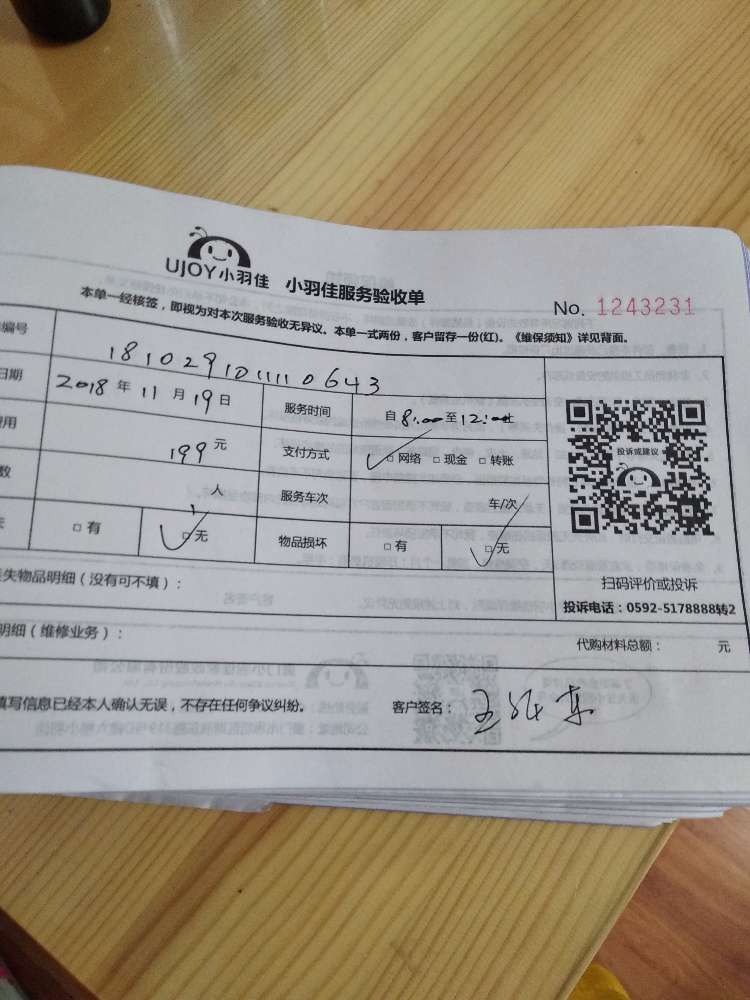 UJOY小羽佳 小羽佳服务验收单
No. 1243231
本单一经核签,即视为对本次服务验收无异议。本单一式两份,客户留存一份(红)。《维保须知》详见背面。
编号 181029101110643
日期 2018 年 11 月 19 日 服务时间 自 8:00 至 12:00
用 199 元 支付方式 □网络 □现金 □转账
数 人 服务车次 车/次
□有 □无 物品损坏 □有 □无
投诉或建议
扫码评价或投诉
失物品明细(没有可不填):
投诉电话:0592-5178888转2
明细(维修业务):
代购材料总额: 元
填写信息已经本人确认无误,不存在任何争议纠纷。 客户签名: